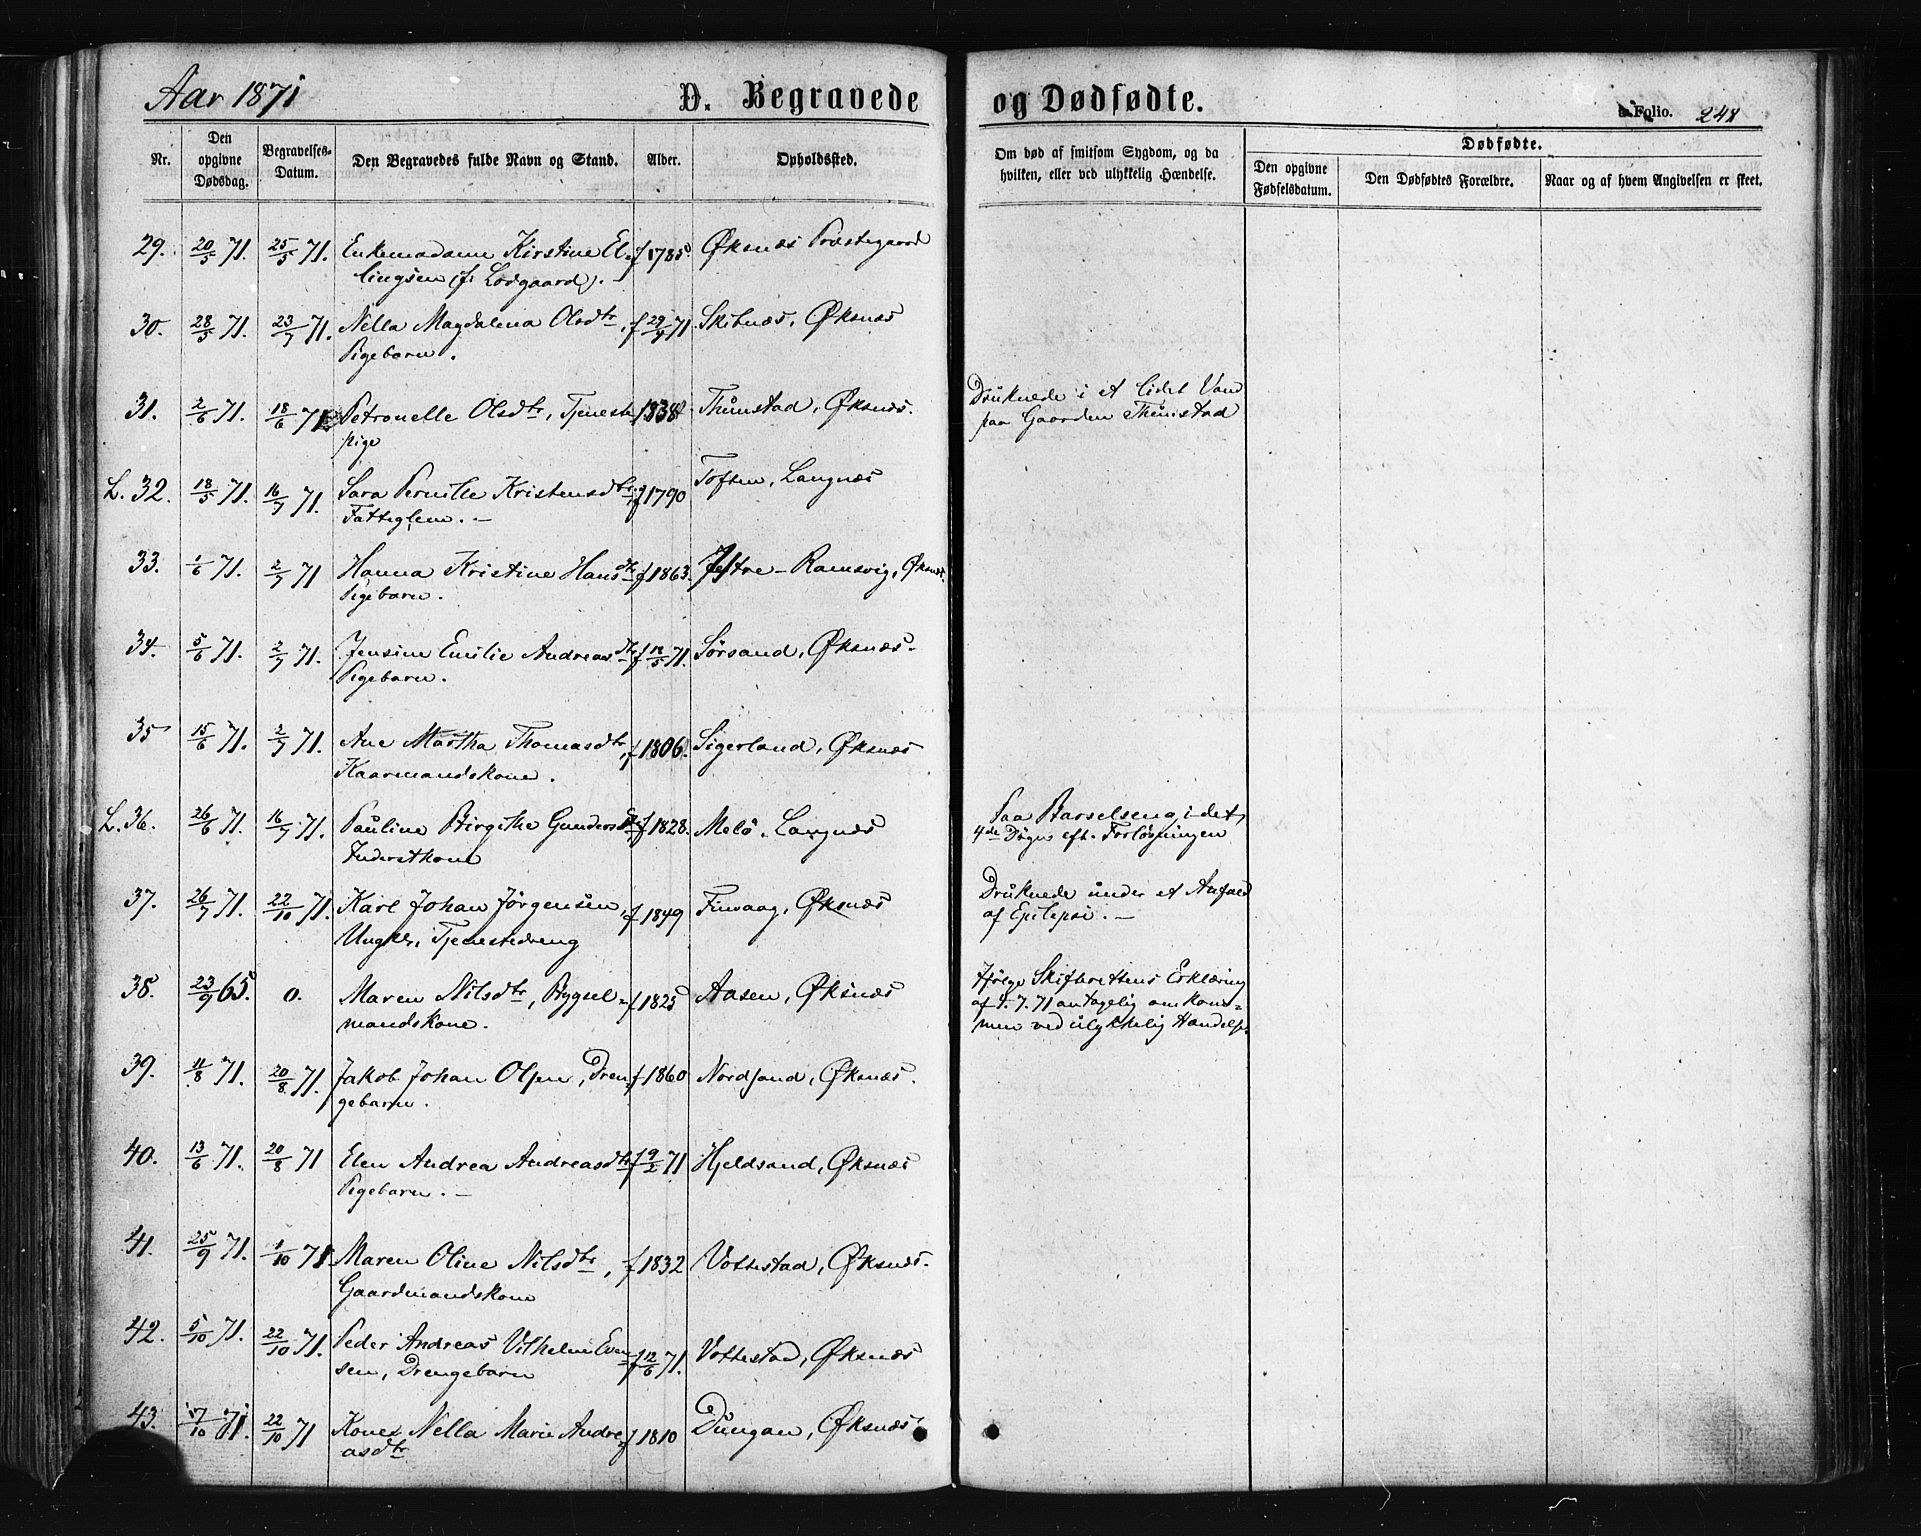 Aar 1871
D. Begravede og Dødfødte.
Folio. 248
Nr.
Den opgivne Dødsdag.
Begravelses-Datum.
Den Begravedes fulde Navn og Stand.
Alder.
Opholdssted.
Om død af smitsom Sygdom, og da hvilken, eller ved ulykkelig Hændelse.
Dødfødte.
Den opgivne Fødselsdatum.
Den Dødfødtes Forældre.
Naar og af hvem Angivelsen er skeet.
29. 20/5 71. 25/5 71. Enkemadame Kirstine El- f 1785. Øksnæs Præstegaard
lingsen (f. Lodgaard).
30. 28/5 71. 23/7 71. Nella Magdalena Olsdtr, f 29/4 71. Skibnæs, Øksnæs
Pigebarn.
31. 2/6 71. 18/6 71. Petronelle Olsdtr, Tjeneste 1838 Thunstad, Øksnæs. Druknede i et lidet Vand
pige paa Gaarden Thunstad
L. 32. 18/5 71. 16/7 71. Sara Pernille Kristensdtr f 1790 Toften, Langnæs
Fattiglem. -
33. 1/6 71. 2/7 71 Hanna Kristine Hansdtr f 1863. Ramsvig, Øksnæs.
Pigebarn.
34. 5/6 71. 2/7 71. Jensine Emilie Andreasdtr f 18/5 71. Sørsand, Øksnæs.
Pigebarn.
35 15/6 71. 2/7 71. Ane Martha Thomasdtr, f 1806. Sigerland, Øksnæs
Kaarmandskone.
L. 36. 26/6 71. 16/7 71. Pauline Birgithe Gundersdtr f 1828. Melö, Langnæs Paa Barselseng i det
Inderstkone 4de Døgn eft. Forløsningen
37. 26/7 71. 22/10 71. Karl Johan Jörgensen, f 1849 Finvaag, Øksnæs Druknede under et Anfald
Ungkl., Tjenestedreng af Epilepsi. -
38. 23/9 65. 0. Maren Nilsdtr, Bygsel- f 1825 Aasen, Øksnæs Ifølge Skifterettens Erklæring
mandskone. af 5.7.71 antagelig omkom-
men ved ulykkelig Hændelse.
39. 11/8 71. 20/8 71. Jakob Johan Olsen, Dren- f 1860 Nordsand, Øksnæs.
gebarn.
40. 13/6 71. 20/8 71 Elen Andrea Andreasdtr f 9/2 71 Hjeldsand, Øksnæs
Pigebarn. -
41. 25/9 71. 1/10 71. Maren Oline Nilsdtr, f 1832 Vottestad, Øksnæs.
Gaardmandskone
42. 5/10 71. 22/10 71. Peder Andreas Vilhelm Even- f 12/6 71. Vottestad, Øksnæs
sen, Drengebarn
43. 7/10 71. 22/10 71 Kone Nella Marie Andre- f 1810 Dungan, Øksnæs
asdtr